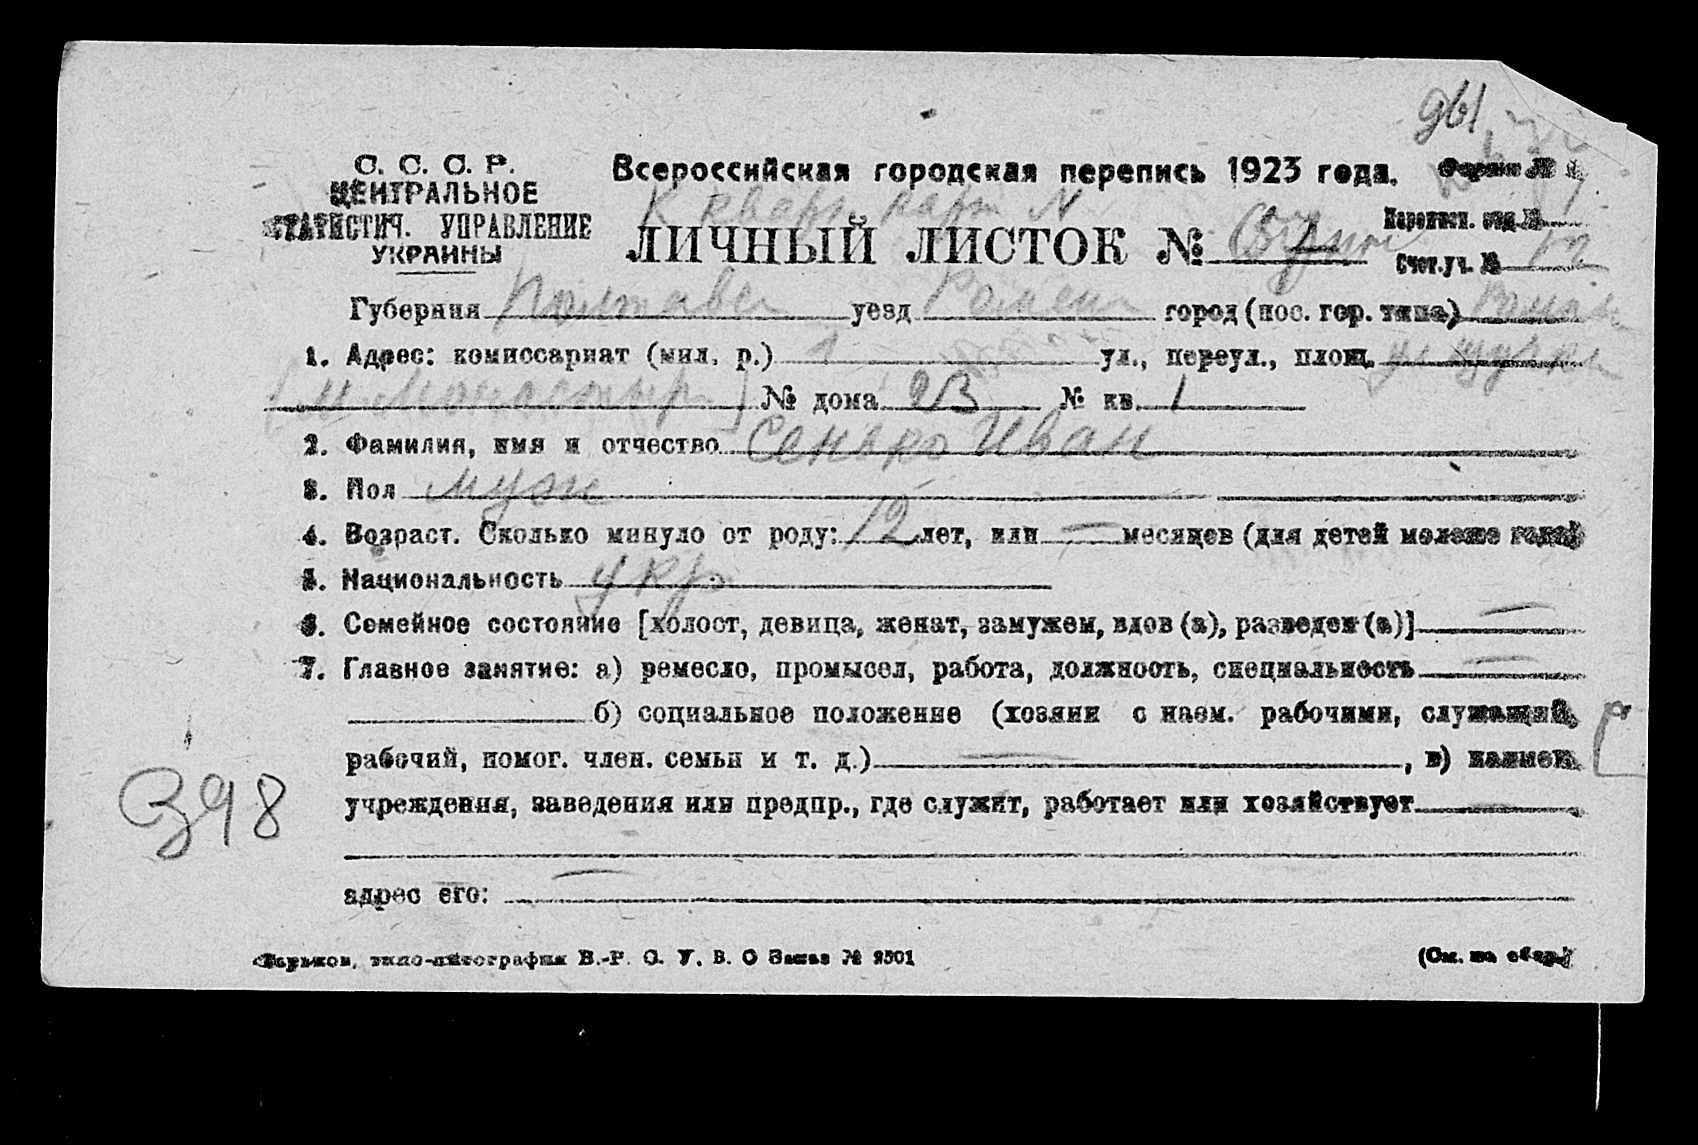 961
С. С. С. Р.
ЦЕНТРАЛЬНОЕ
СТАТИСТИЧ. УПРАВЛЕНИЕ
УКРАИНЫ
Всероссийская городская перепись 1923 года. Форма №
К кварт. карт. №
ЛИЧНЫЙ ЛИСТОК №
Переписн. отд. №
Счет. уч. № 12
Губерния Полтавс уезд Роменс город (пос. гор. типа) Ромны
1. Адрес: комиссариат (мил. р.) 1 ул., переул., площ.
№ дома 23 № кв. 1
2. Фамилия, имя и отчество Сенько Иван
3. Пол муж
4. Возраст. Сколько минуло от роду: 12 лет, или — месяцев (для детей моложе года)
5. Национальность укр
6. Семейное состояние [холост, девица, женат, замужем, вдов (а), разведен (а)] —
7. Главное занятие: а) ремесло, промысел, работа, должность, специальность —
б) социальное положение (хозяин с наем. рабочими, служащий,
рабочий, помог. член. семьи и т. д.) — , в) наимен.
учреждения, заведения или предпр., где служит, работает или хозяйствует —
адрес его: —
398
Харьков, типо-литография В.-Р. С. У. В. О Заказ № 2501 (См. на обор.)